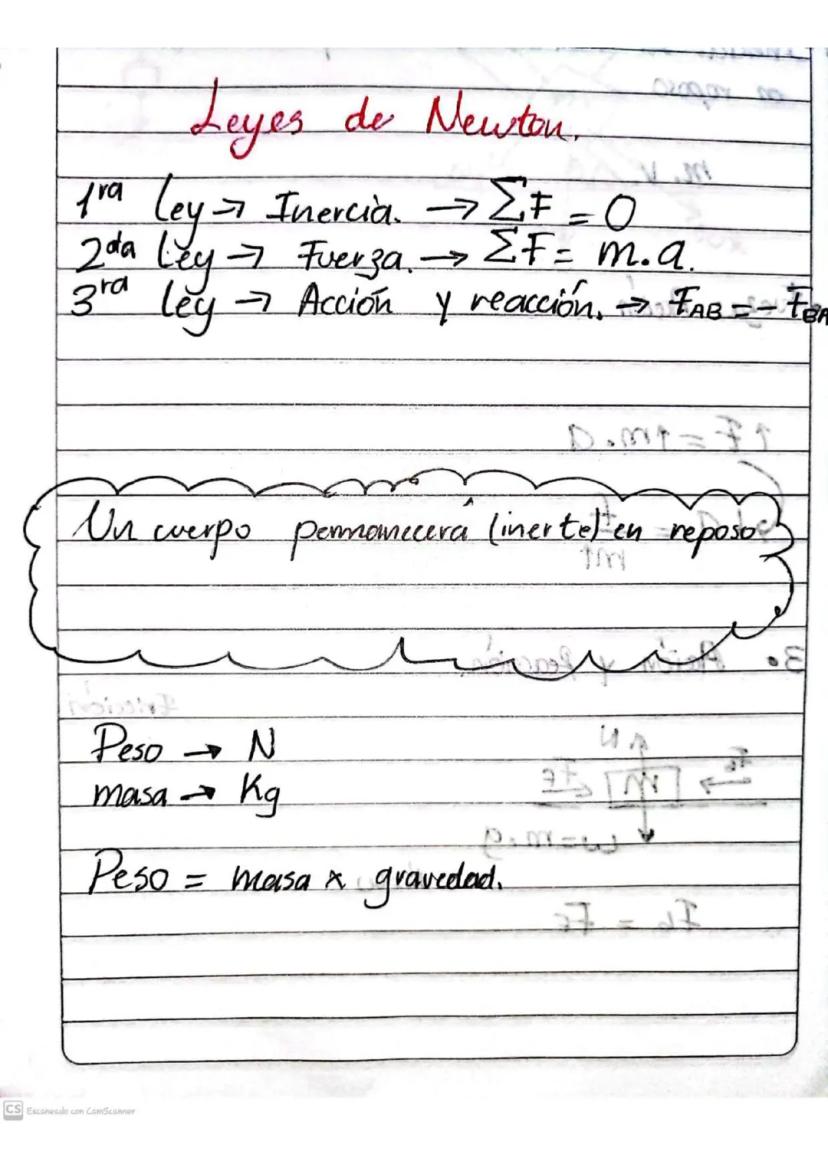 Leyes de Newton.
1ra ley → Inercia. → ΣF = 0
2da ley → Fuerza. → ΣF = m.a.
3ra ley → Acción y reacción. → FAB = - FBA
Un cuerpo permanecerá (inerte) en reposo
Peso → N
masa → Kg
Peso = masa x gravedad.
CS Escaneado con CamScanner